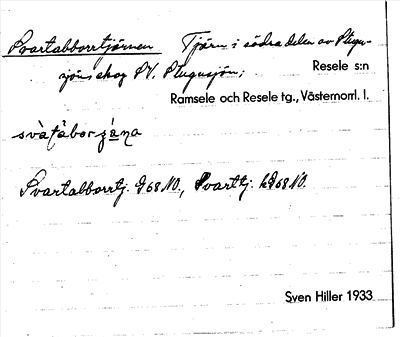 Svartabborrtjärnen Tjärn i södra delen av Stugu-
sjöns skog SV. Stugusjön;
Resele s:n
Ramsele och Resele tg., Västernorrl. l.
Svartabborrtj. g 68 NO., Svarttj. hg 68 NO.
Sven Hiller 1933